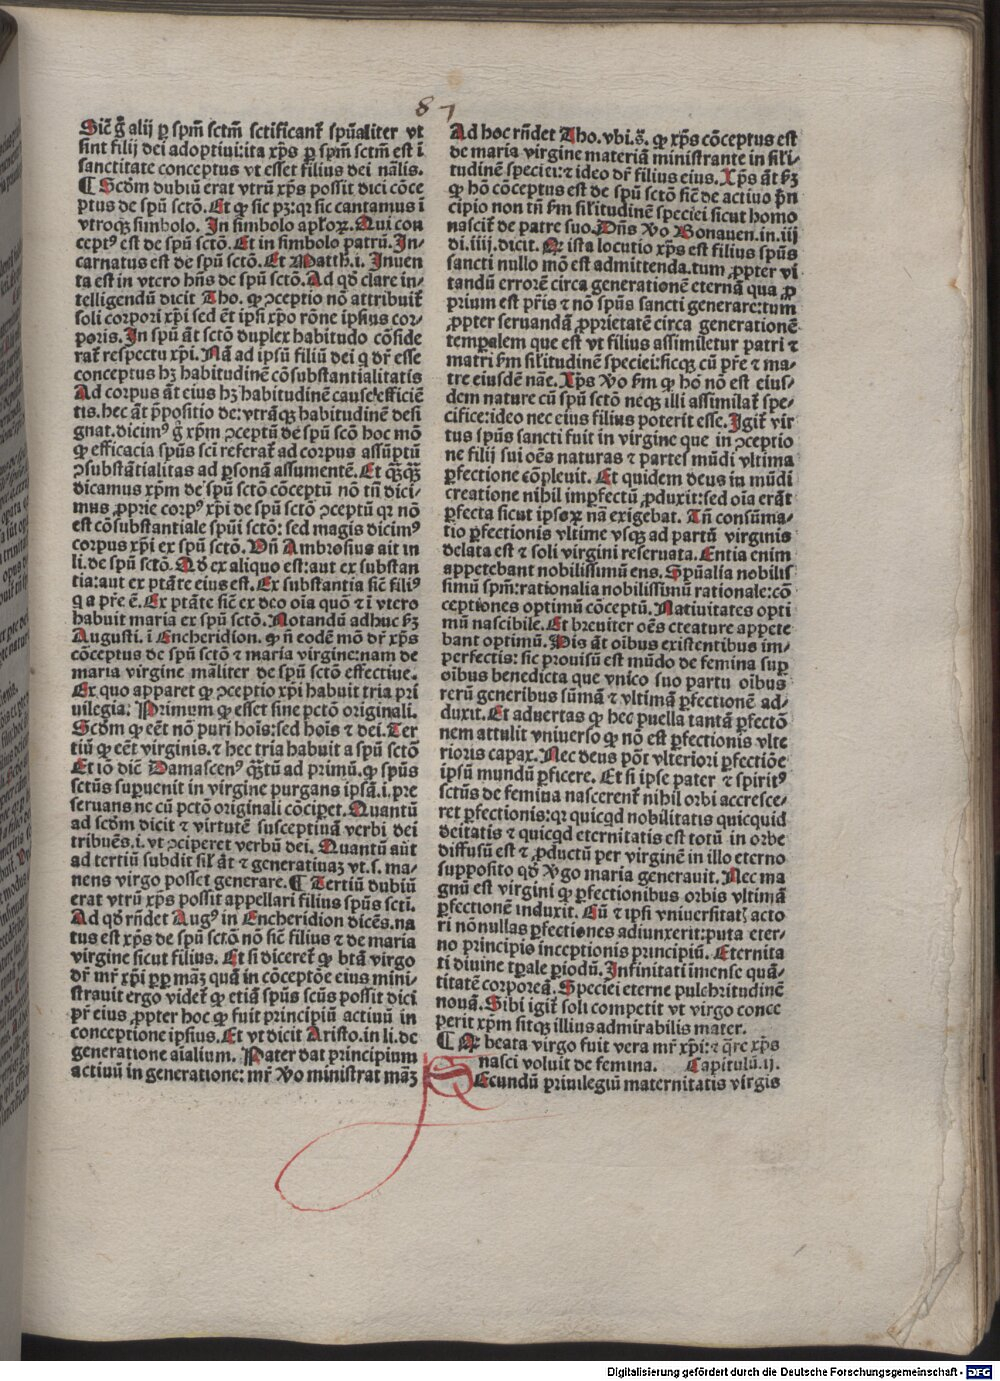 87
Sic̄ g̊ alij ꝑ spm̄ sctm̄ sctificant᷑ spūaliter vt
sint filij dei adoptiui:ita xp̄s ꝑ spm̄ sctm̄ est ī
sanctitate conceptus vt esset filius dei nālis.
¶ Scd̄m dubiū erat vtrū xp̄s possit dici cōce
ptus de spū sctō. Et ꝙ sic pꝫ:qꝛ sic cantamus ī
vtroqꝫ simbolo. In simbolo apl̄oꝝ. Qui con
ceptꝰ est de spū sctō. Et in simbolo patrū. In-
carnatus est de spū sctō. Et Matth̄.i. Inuen
ta est in vtero hn̄s de spū sctō. Ad qd̄ clare in-
telligendū dicit Tho. ꝙ ↄceptio nō attribuit᷑
soli corpori xp̄i sed ēt ipsi xp̄o rōne ipsius cor-
poris. In spū āt sctō duplex habitudo cōside
rat᷑ respectu xp̄i. Nā ad ipsū filiū dei q dr̄ esse
conceptus hꝫ habitudinē cōsubstantialitatis
Ad corpus āt eius hꝫ habitudinē cause efficiē
tis. hec āt p̄positio de: vtrāqꝫ habitudinē desi
gnat. dicimꝰ g̊ xp̄m ↄceptū de spū scō hoc mō
ꝙ efficacia spūs sci referat᷑ ad corpus assūptū
ↄsubstātialitas ad ꝑsonā assumentē. Et qꝫqꝫ
dicamus xp̄m de spū sctō cōceptū nō tn̄ dici-
mus ꝓprie corpꝰ xp̄i de spū sctō ↄceptū qꝛ nō
est cōsubstantiale spūi sctō: sed magis dicimꝰ
corpus xp̄i ex spū sctō. Vn̄ Ambrosius ait in
li. de spū sctō. Qd̄ ex aliquo est:aut ex substan
tia:aut ex ptāte eius est. Ex substantia sic̄ filiꝰ
q a pr̄e ē. Ex ptāte sic̄ ex deo oīa quō ⁊ ī vtero
habuit maria ex spū sctō. Notandū adhuc s̄ꝫ
Augusti. ī Encheridion. ꝙ n̄ eodē mō dr̄ xp̄s
cōceptus de spū sctō ⁊ maria virgine:nam de
maria virgine māliter de spū sctō effectiue.
Ex quo apparet ꝙ ↄceptio xp̄i habuit tria pri
uilegia. Primum ꝙ esset sine pctō originali.
Scd̄m ꝙ eēt nō puri hoīs:sed hoīs ⁊ dei. Ter
tiū ꝙ eēt virginis. ⁊ hec tria habuit a spū sctō
Et iō dic̄ Damascenꝰ qꝫtū ad primū. ꝙ spūs
sctūs suꝑuenit in virgine purgans ipsā. i. pre
seruans ne cū pctō originali cōciꝑet. Quantū
ad scd̄m dicit ⁊ virtutē susceptiuā verbi dei
tribuēs. i. vt ↄciperet verbū dei. Quantū aūt
ad tertiū subdit sil̄ āt ⁊ generatiuaꝫ vt.s. ma-
nens virgo posset generare. ¶ Tertiū dubiū
erat vtrū xp̄s possit appellari filius spūs scti.
Ad qd̄ rn̄det Augꝰ in Encheridion dicēs. na
tus est xp̄s de spū sctō nō sic̄ filius ⁊ de maria
virgine sicut filius. Et si diceret᷑ ꝙ btā virgo
dr̄ mr̄ xp̄i ꝓp māꝫ quā in cōceptōe eius mini-
strauit ergo videt᷑ ꝙ etiā spūs scūs possit dici
pr̄ eius ꝓpter hoc ꝙ fuit principiū actiuū in
conceptione ipsius. Et vt dicit Aristo. in li. de
generatione aīalium. Pater dat principium
actiuū in generatione: mr̄ v̊o ministrat māꝫ
Ad hoc rn̄det Tho. vbi.s̄. ꝙ xp̄s cōceptus est
de maria virgine materiā ministrante in sil'i-
tudinē speciei:⁊ ideo dr̄ filius eius. Xp̄s āt s̄ꝫ
ꝙ hō cōceptus est de spū sctō sic̄ de actiuo p̄n
cipio non tn̄ s̄m sil'itudinē speciei sicut homo
nascit᷑ de patre suo. Dn̄s v̊o Bonauen. in. iij
di. iiij. dicit. Qꝛ ista locutio xp̄s est filius spūs
sancti nullo mō est admittenda. tum ꝓpter vi
tandū errorē circa generationē eternā qua ꝓ
prium est pr̄is ⁊ nō spūs sancti generare:tum
ꝓpter seruandā ꝓprietatē circa generationē
temꝑalem que est vt filius assimiletur patri ⁊
matri s̄m sil'itudinē speciei:sicqꝫ cū pr̄e ⁊ ma-
tre eiusdē nāe. Xp̄s v̊o s̄m ꝙ hō nō est eius-
dem nature cū spū sctō neqꝫ illi assimilat᷑ spe-
cifice:ideo nec eius filius poterit esse. Igit᷑ vir
tus spūs sancti fuit in virgine que in ↄceptio
ne filij sui oēs naturas ⁊ partes mūdi vltima
ꝑfectione cōpleuit. Et quidem deus in mūdi
creatione nihil imꝑfectū ꝓduxit:sed oīa erāt
ꝑfecta sicut ipsoꝝ nā exigebat. Tn̄ consūma-
tio ꝑfectionis vltime vsqꝫ ad partū virginis
delata est ⁊ soli virgini reseruata. Entia enim
appetebant nobilissimū ens. Spūalia nobilis
simū spm̄:rationalia nobilissimū rationale:cō
ceptiones optimū cōceptū. Natiuitates opti
mū nascibile. Et breuiter oēs creature appete
bant optimū. His āt oībus existentibus im-
perfectis: sic prouisū est mūdo de femina suꝑ
oībus benedicta que vnico suo partu oībus
rerū generibus sūmā ⁊ vltimā ꝑfectionē ad-
duxit. Et aduertas ꝙ hec puella tantā ꝑfectō
nem attulit vniuerso ꝙ nō est ꝑfectionis vlte
rioris capax. Nec deus pōt vlteriori ꝑfectiōe
ipsū mundū ꝑficere. Et si ipse pater ⁊ spiritꝰ
sctūs de femina nascerent᷑ nihil orbi accresce-
ret ꝑfectionis:qꝛ quicqd nobilitatis quicquid
deitatis ⁊ quicqd eternitatis est totū in orbe
diffusū est ⁊ ꝓductū per virginē in illo eterno
supposito qd̄ v̊go maria generauit. Nec ma
gnū est virgini ꝙ ꝑfectionibus orbis vltimā
ꝑfectionē induxit. Cū ⁊ ipsi vniuersitatꝭ acto
ri nōnullas ꝑfectiones adiunxerit:puta eter-
no principio inceptionis principiū. Eternita
ti diuine tꝑale ꝑiodū. Infinitati imense quā-
titatē corporeā. Speciei eterne pulchritudinē
nouā. Sibi igit᷑ soli competit vt virgo conce
perit xp̄m sitqꝫ illius admirabilis mater.
¶ Qꝛ beata virgo fuit vera mr̄ xp̄i:⁊ q̄re xp̄s
nasci voluit de femina. Capitulū.ij.
SEcundū priuilegiū maternitatis virgis
Digitalisierung gefördert durch die Deutsche Forschungsgemeinschaft - DFG